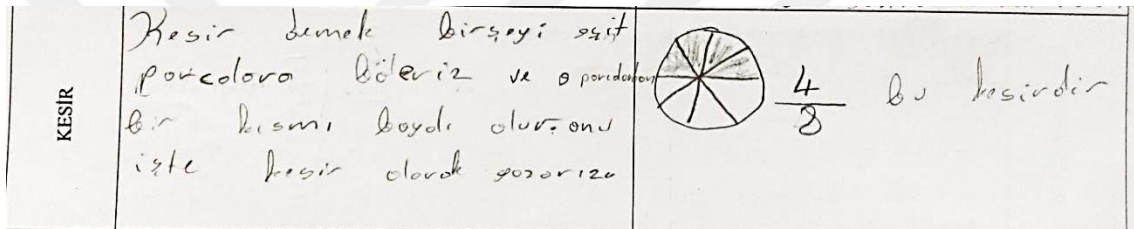 KESİR
Kesir demek birşeyi eşit
parçalara böleriz ve o parçalardan
bir kısmı boyalı olur. onu
işte kesir olarak yazarız.
4
8
bu kesirdir